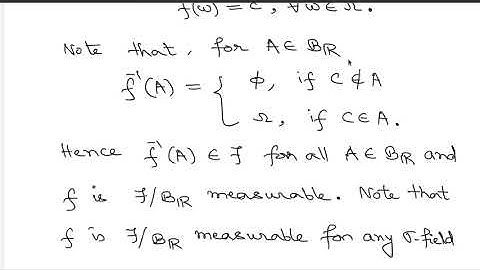 f(ω) = c, ∀ ω ∈ Ω.
Note that, for A ∈ 𝔹ℝ
f⁻¹(A) = { ϕ, if c ∉ A
Ω, if c ∈ A.
Hence f⁻¹(A) ∈ ℱ for all A ∈ 𝔹ℝ and
f is ℱ/𝔹ℝ measurable. Note that
f is ℱ/𝔹ℝ measurable for any σ-field